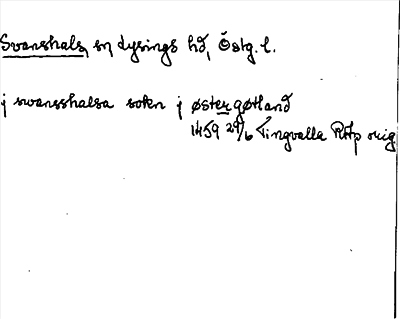 Svanshals, sn Lysings hd, Östg. l.
j swansshalsa sokn j østergøtland
1459 29/6 Tingvalla RAp orig